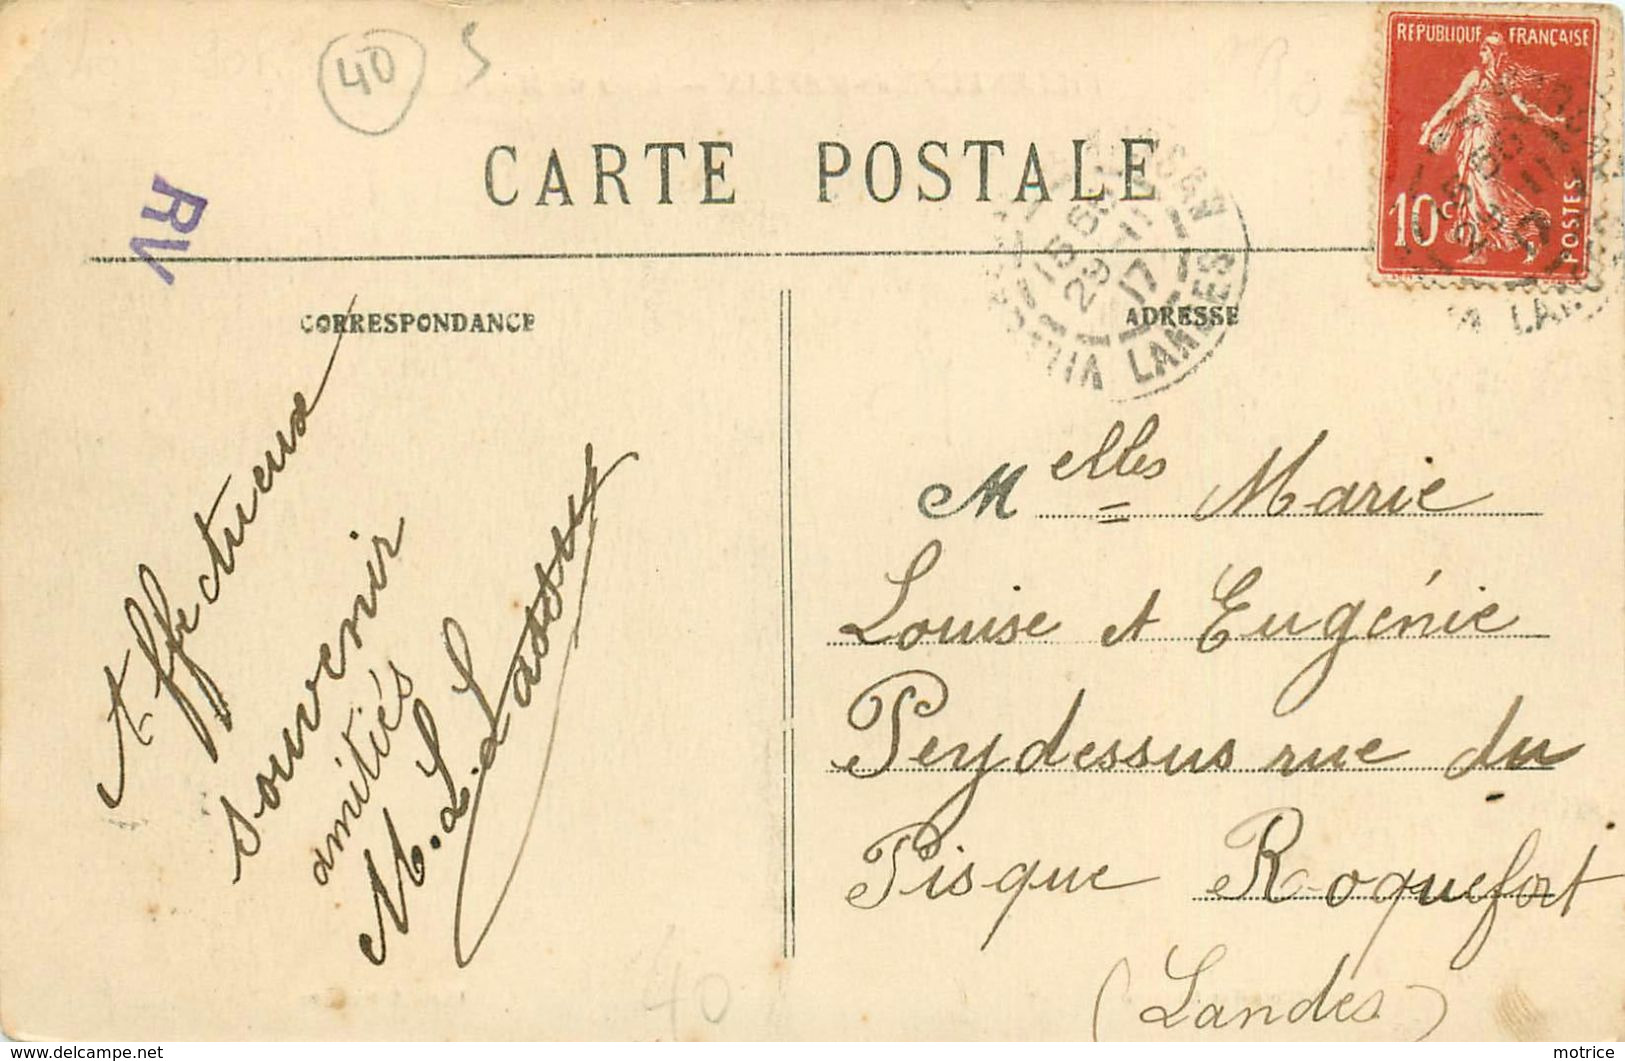 40 S
RV
CARTE POSTALE
REPUBLIQUE FRANÇAISE
10c
POSTES
CORRESPONDANCE
ADRESSE
15 55
29 -11
17
LANDES
Affectueux
souvenir
amitiés
M. L. Lassus
Melles Marie
Louise et Eugénie
Peydessus rue du
Pisque Roquefort
(Landes)
40
https://www.delcampe.net
motrice